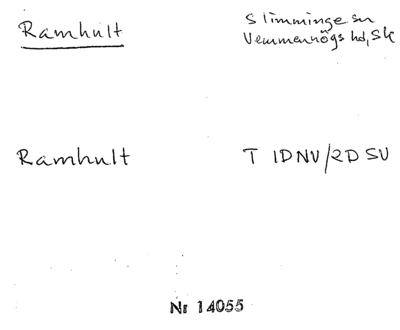 Ramhult
Slimminge sn
Vemmenhögs hd, Sk
Ramhult
T 1DNV/2DSV
Nr 14055